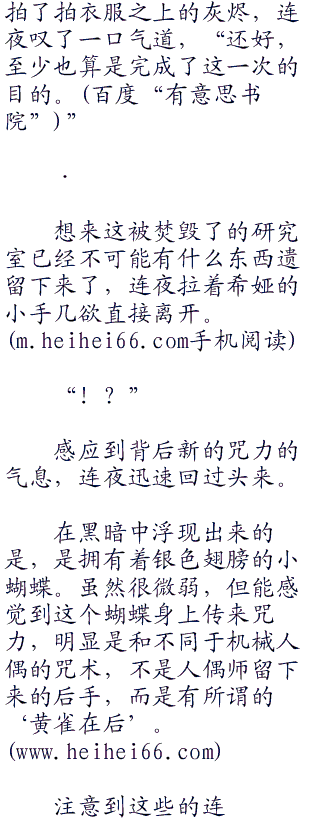 拍了拍衣服之上的灰烬，连
夜叹了一口气道，“还好，
至少也算是完成了这一次的
目的。(百度“有意思书
院”)”
.
想来这被焚毁了的研究
室已经不可能有什么东西遗
留下来了，连夜拉着希娅的
小手几欲直接离开。
(m.heihei66.com手机阅读)
“！？”
感应到背后新的咒力的
气息，连夜迅速回过头来。
在黑暗中浮现出来的
是，是拥有着银色翅膀的小
蝴蝶。虽然很微弱，但能感
觉到这个蝴蝶身上传来咒
力，明显是和不同于机械人
偶的咒术，不是人偶师留下
来的后手，而是有所谓的
‘黄雀在后’。
(www.heihei66.com)
注意到这些的连